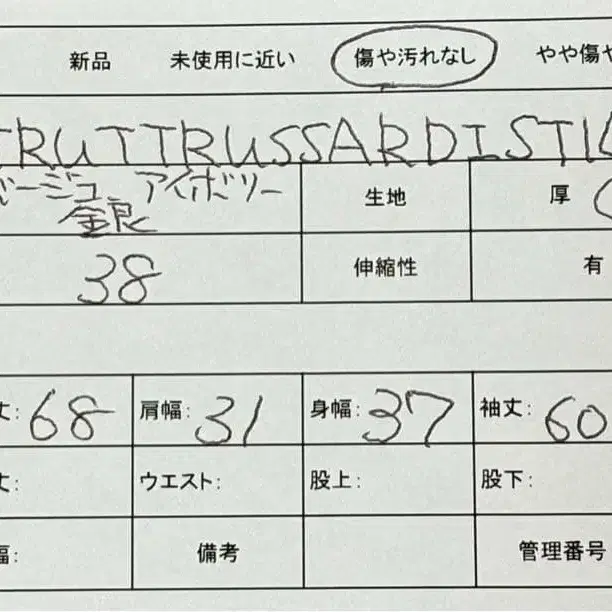 新品 未使用に近い 傷や汚れなし やや傷や
TRUTTRUSSARDISTIL
ベージュ アイボリー 生地 厚
金銀
38 伸縮性 有
丈: 68 肩幅: 31 身幅: 37 袖丈: 60
丈: ウエスト: 股上: 股下:
幅: 備考 管理番号